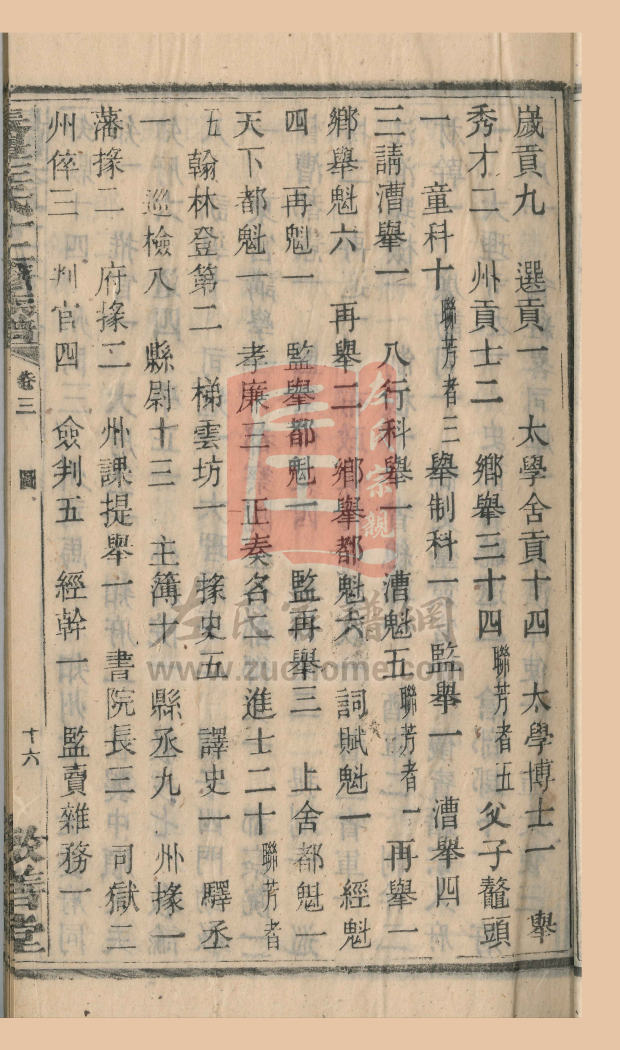 歲貢九　選貢一　太學舍貢十四　太學博士一　舉
秀才二　州貢士二　鄉舉三十四聯芳者五父子鼇頭
一　童科十聯芳者三舉制科一　監舉一　漕舉四
三請漕舉一　八行科舉一　漕魁五聯芳者一再舉一
鄉舉魁六　再舉二　鄉舉都魁六　詞賦魁一　經魁
四　再魁一　監舉都魁一　監再舉三　上舍都魁一
天下都魁一　孝廉三　正奏名二　進士二十聯芳者
五　翰林登第二　梯雲坊一　掾史五　譯史一　驛丞
一　巡檢八　縣尉十三　主簿十　縣丞九　州掾一
藩掾二　府掾二　州課提舉一　書院長三　司獄二
州倅三　判官四　僉判五　經幹一　監賣雜務一
卷三　圖　十六
敦善堂
左氏宗親
左氏家譜網
www.zuohome.com